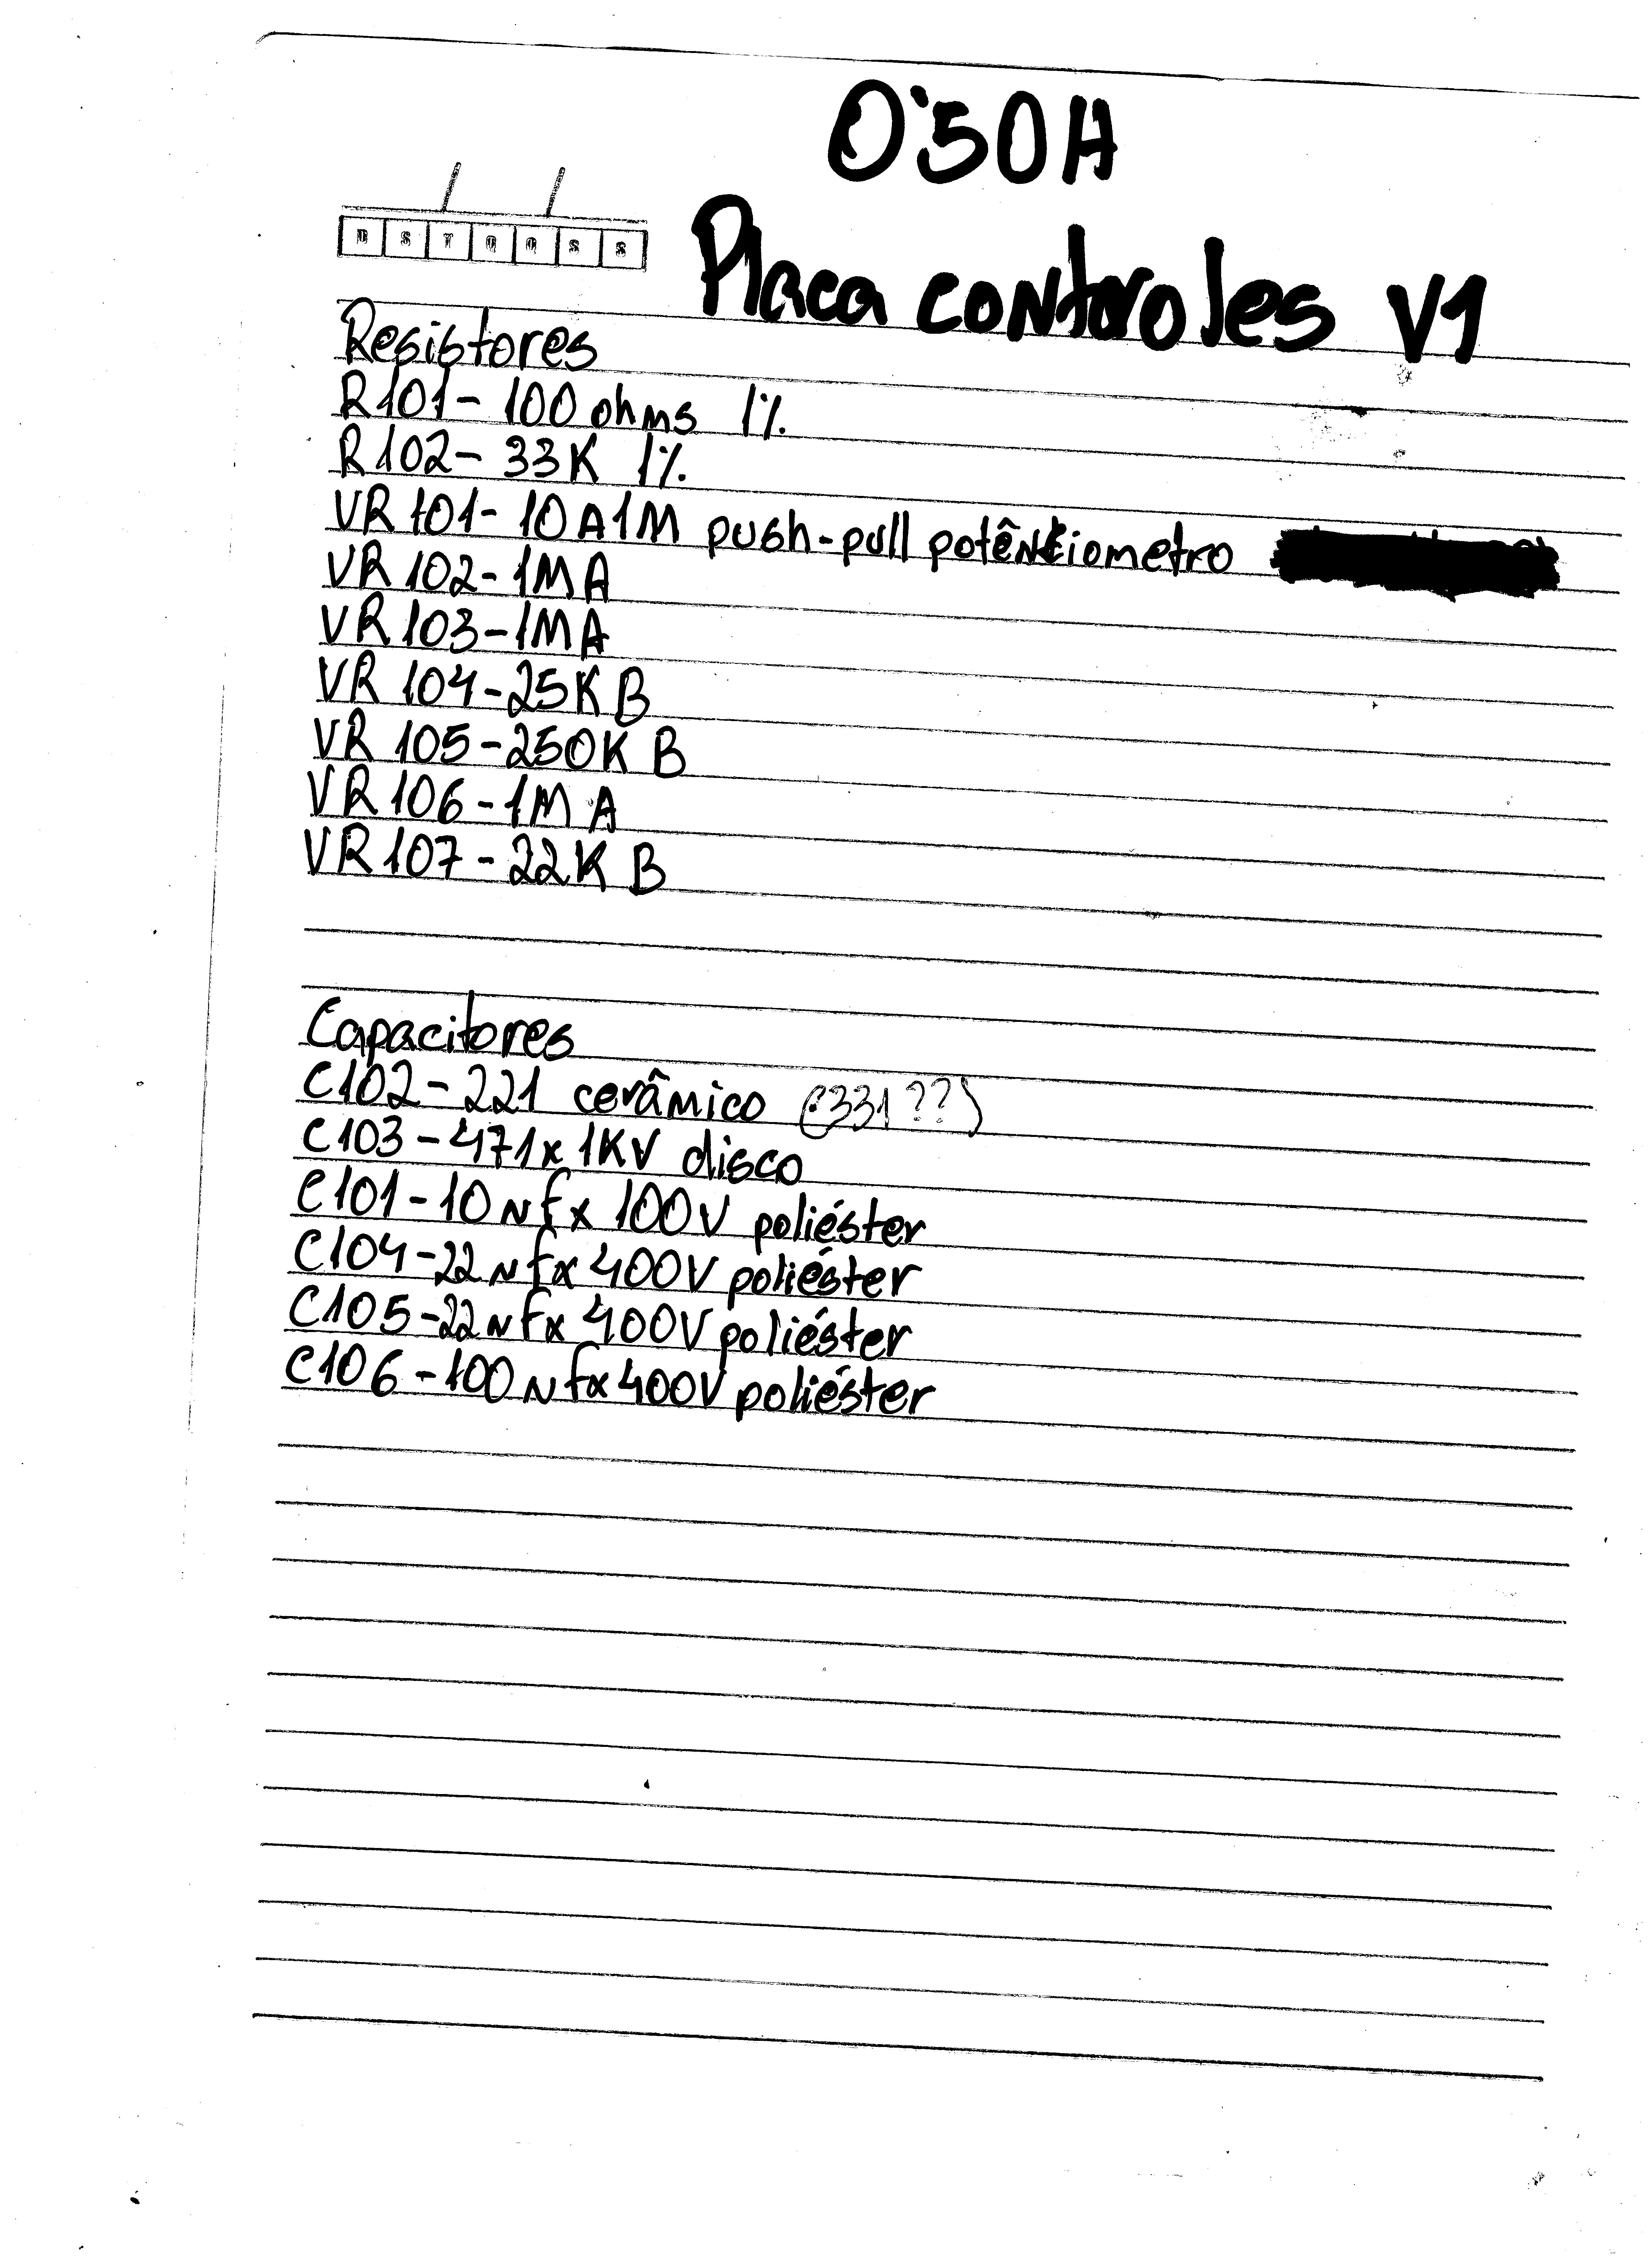 O'50H
D S T Q Q S S
Placa controles V1
Resistores
R101- 100 ohms 1%
R102- 33K 1%
VR101- 10A1M push-pull potênciometro
VR102-1MA
VR103-1MA
VR104-25KB
VR105-250K B
VR106-1M A
VR107-22K B
Capacitores
C102-221 cerâmico (331??)
C103-471x 1KV disco
C101-10nfx 100V poliéster
C104-22nfx 400V poliéster
C105-22nfx 400V poliéster
C106-100nfx400V poliéster